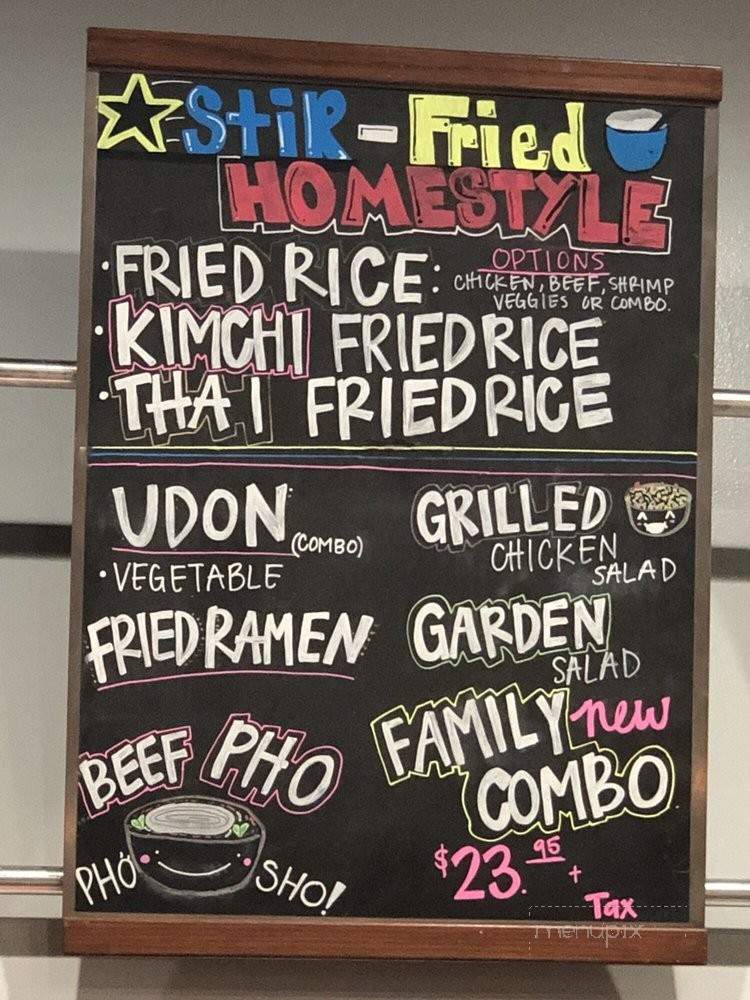 STiR-Fried
HOMESTYLE
·FRIED RICE:
OPTIONS
CHICKEN, BEEF, SHRIMP
VEGGIES OR COMBO.
·KIMCHI FRIED RICE
·THAI FRIED RICE
UDON (COMBO)
·VEGETABLE
FRIED RAMEN
BEEF PHO
PHÓ SHO!
GRILLED
CHICKEN
SALAD
GARDEN
SALAD
FAMILY new
COMBO
$23.95 +
Tax
menupix